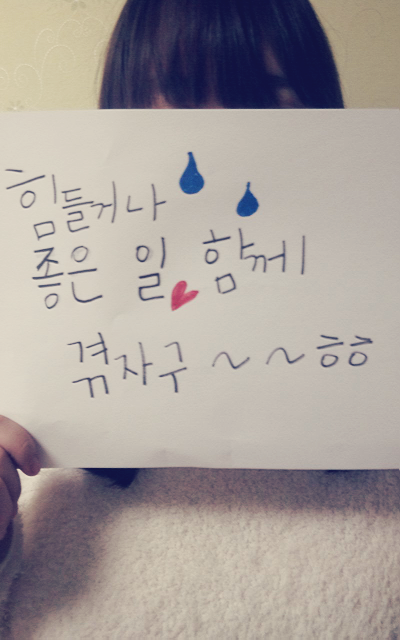 힘들거나
좋은 일 함께
겪자구 ~ ~ 흥흥